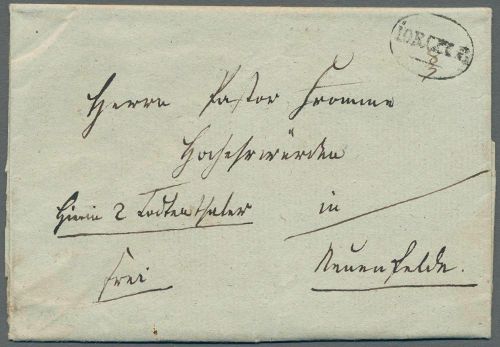 JORCK
8/2
Herrn Pastor Fromme
Hochehrwürden
Hierin 2 Todtenthaler in
frei Neuenfelde.